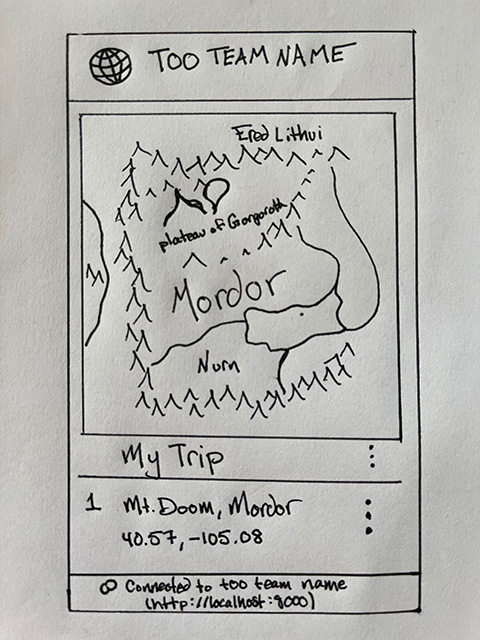 TOO TEAM NAME
Ered Lithui
plateau of Gorgoroth
Mordor
Nurn
My Trip
1 Mt. Doom, Mordor
40.57, -105.08
Connected to too team name
(http://localhost:8000)